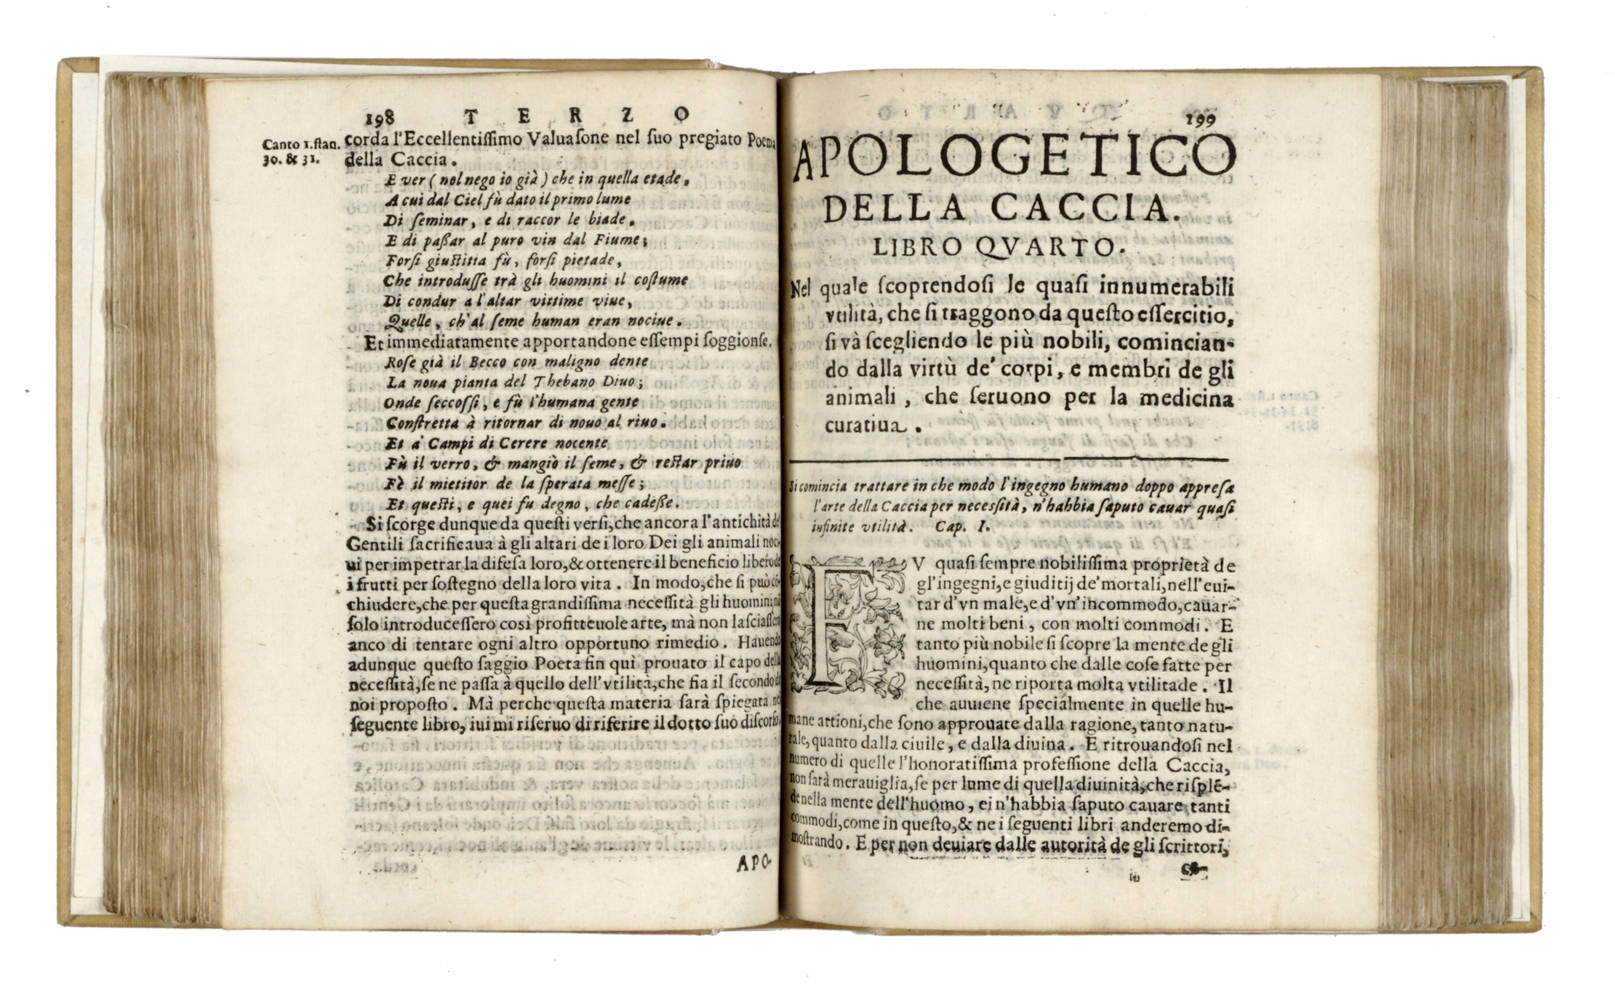 198 TERZO
Canto 1. stan.
30. & 31.
corda l'Eccellentissimo Valuasone nel suo pregiato Poema
della Caccia.
E ver ( nol nego io già ) che in quella etade,
A cui dal Ciel fù dato il primo lume
Di seminar, e di raccor le biade,
E di paßar al puro vin dal Fiume;
Forsi giustitia fù, forsi pietade,
Che introdusse trà gli huomini il costume
Di condur a l'altar vittime viue,
Quelle, ch'al seme human eran nociue.
Et immediatamente apportandone essempi soggionse.
Rose già il Becco con maligno dente
La noua pianta del Thebano Diuo;
Onde seccossi, e fù l'humana gente
Constretta à ritornar di nouo al riuo.
Et a' Campi di Cerere nocente
Fù il verro, & mangiò il seme, & restar priuo
Fè il mietitor de la sperata messe;
Et questi, e quei fu degno, che cadeße.
Si scorge dunque da questi versi, che ancora l'antichità de
Gentili sacrificaua à gli altari de i loro Dei gli animali noc-
ui per impetrar la difesa loro, & ottenere il beneficio libero de
i frutti per sostegno della loro vita. In modo, che si può cō-
chiudere, che per questa grandissima necessità gli huomini nō
solo introducessero così profitteuole arte, mà non lasciassero
anco di tentare ogni altro opportuno rimedio. Hauendo
adunque questo saggio Poeta fin quì prouato il capo della
necessità, se ne passa à quello dell'vtilità, che fia il secondo di
noi proposto. Mà perche questa materia sarà spiegata nel
seguente libro, iui mi riseruo di riferire il dotto suo discorso.
APO-
199
APOLOGETICO
DELLA CACCIA.
LIBRO QVARTO.
Nel quale scoprendosi le quasi innumerabili
vtilità, che si traggono da questo essercitio,
si và scegliendo le più nobili, comincian-
do dalla virtù de' corpi, e membri de gli
animali, che seruono per la medicina
curatiua.
Si comincia trattare in che modo l'ingegno humano doppo appresa
l'arte della Caccia per necessità, n'habbia saputo cauar quasi
infinite vtilità. Cap. I.
FV quasi sempre nobilissima proprietà de
gl'ingegni, e giuditij de' mortali, nell'eui-
tar d'vn male, e d'vn' incommodo, cauar-
ne molti beni, con molti commodi. E
tanto più nobile si scopre la mente de gli
huomini, quanto che dalle cose fatte per
necessità, ne riporta molta vtilitade. Il
che auuiene specialmente in quelle hu-
mane attioni, che sono approuate dalla ragione, tanto natu-
rale, quanto dalla ciuile, e dalla diuina. E ritrouandosi nel
numero di quelle l'honoratissima professione della Caccia,
non sarà merauiglia, se per lume di quella diuinità, che risplē-
de nella mente dell'huomo, ei n'habbia saputo cauare tanti
commodi, come in questo, & ne i seguenti libri anderemo di-
mostrando. E per non deuiare dalle autorità de gli scrittori,